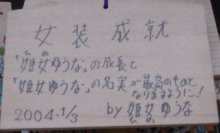 女装成就
「姫女ゆうな」の成長と
「姫女ゆうな」の名実が最高のものと
なりますように!
2004.1/3 by 姫女ゆうな